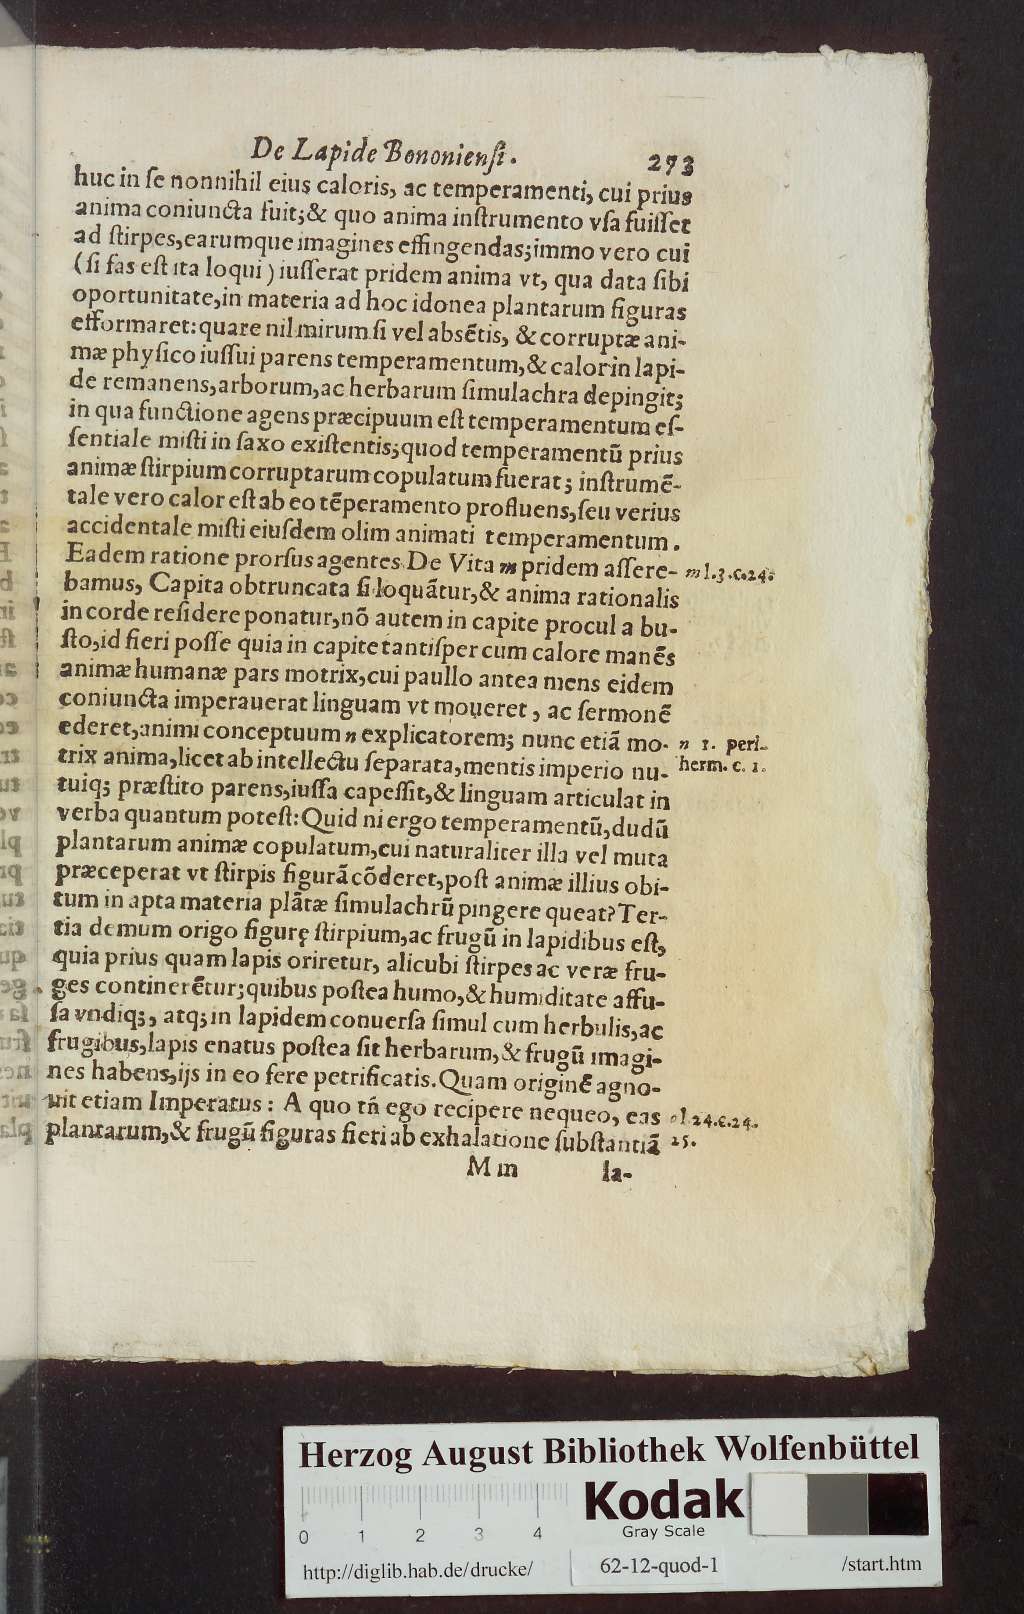 De Lapide Bononiensi. 273
huc in se nonnihil eius caloris, ac temperamenti, cui prius
anima coniuncta fuit;& quo anima instrumento vsa fuisset
ad stirpes,earumque imagines effingendas;immo vero cui
(si fas est ita loqui) iusserat pridem anima vt, qua data sibi
oportunitate,in materia ad hoc idonea plantarum figuras
efformaret:quare nil mirum si vel absẽtis, & corruptæ ani-
mæ physico iussui parens temperamentum,& calor in lapi-
de remanens,arborum,ac herbarum simulachra depingit;
in qua functione agens præcipuum est temperamentum es-
sentiale misti in saxo existentis;quod temperamentũ prius
animæ stirpium corruptarum copulatum fuerat; instrumẽ-
tale vero calor est ab eo tẽperamento profluens,seu verius
accidentale misti eiusdem olim animati temperamentum.
Eadem ratione prorsus agentes De Vita m pridem assere- m l.3.c.24.
bamus, Capita obtruncata si loquãtur,& anima rationalis
in corde residere ponatur,nõ autem in capite procul a bu-
sto,id fieri posse quia in capite tantisper cum calore manẽs
animæ humanæ pars motrix,cui paullo antea mens eidem
coniuncta imperauerat linguam vt moueret, ac sermonẽ
ederet,animi conceptuum n explicatorem; nunc etiã mo- n 1. peri-
trix anima,licet ab intellectu separata,mentis imperio nu- herm. c. 1.
tuiq; præstito parens,iussa capessit,& linguam articulat in
verba quantum potest:Quid ni ergo temperamentũ,dudũ
plantarum animæ copulatum,cui naturaliter illa vel muta
præceperat vt stirpis figurã cõderet,post animæ illius obi-
tum in apta materia plãtæ simulachrũ pingere queat? Ter-
tia demum origo figurę stirpium,ac frugũ in lapidibus est,
quia prius quam lapis oriretur, alicubi stirpes ac veræ fru-
ges continerẽtur;quibus postea humo,& humiditate affu-
sa vndiq;, atq; in lapidem conuersa simul cum herbulis,ac
frugibus,lapis enatus postea sit herbarum,& frugũ imagi-
nes habens,ijs in eo fere petrificatis. Quam originẽ agno-
uit etiam Imperatus: A quo tñ ego recipere nequeo, eas o l.24.c.24.
plantarum,& frugũ figuras fieri ab exhalatione substantiã 25.
M m la-
Herzog August Bibliothek Wolfenbüttel
Kodak
Gray Scale
0 1 2 3 4
http://diglib.hab.de/drucke/ 62-12-quod-1 /start.htm